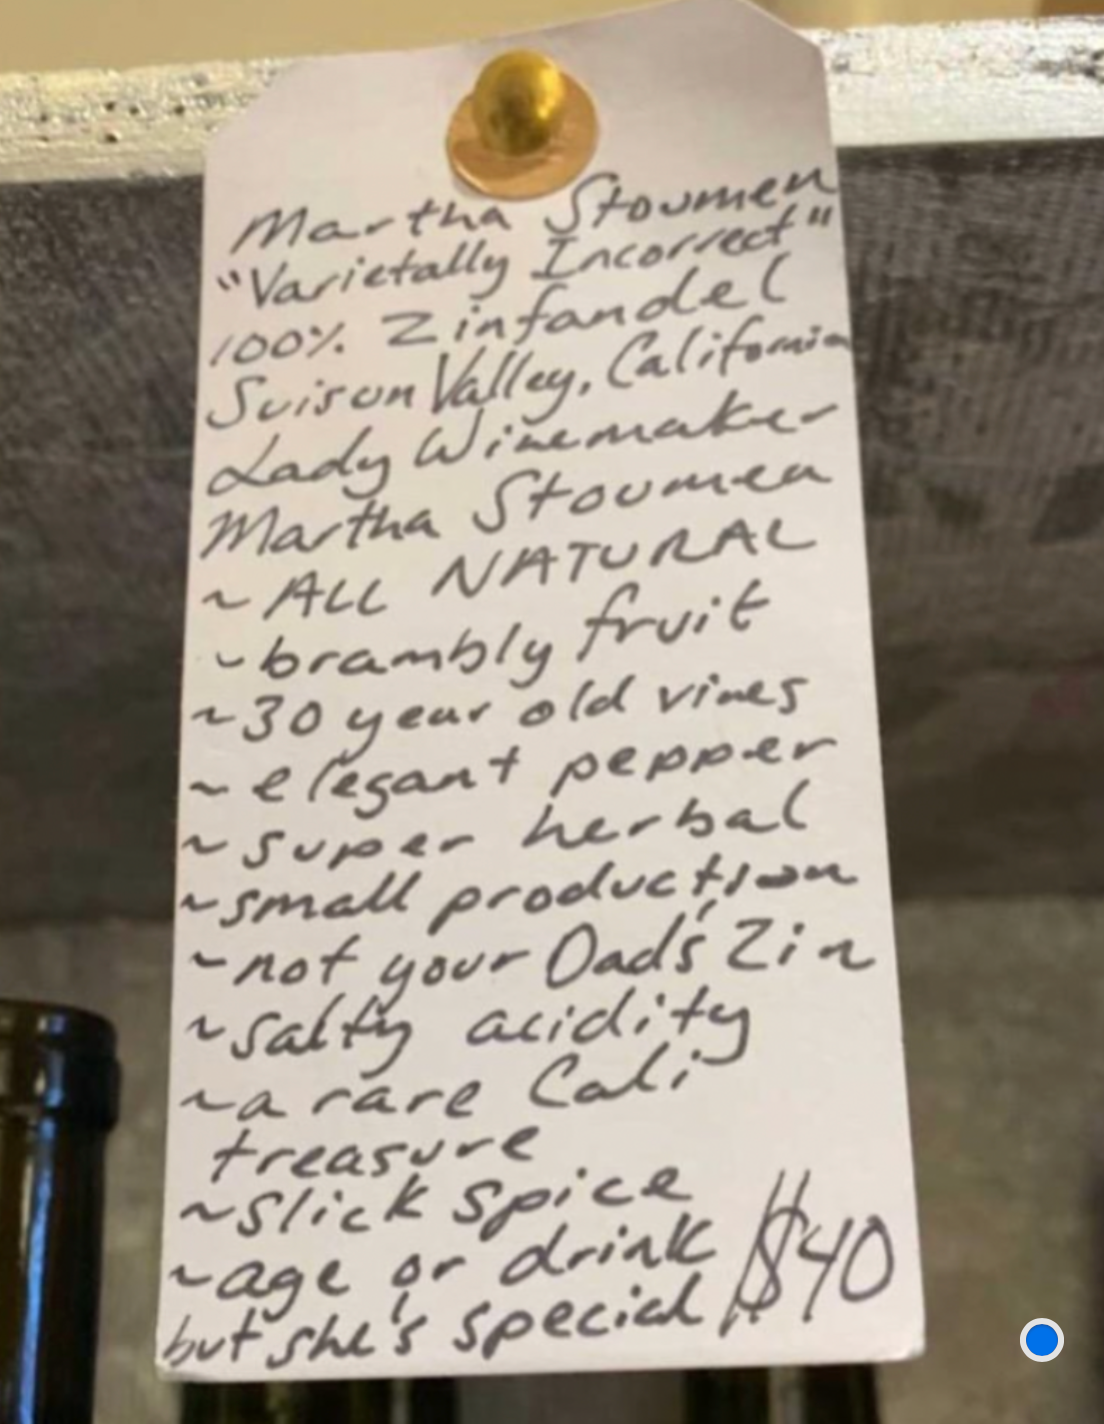 Martha Stoumen
"Varietally Incorrect"
100% Zinfandel
Suisun Valley, California
Lady Winemaker
Martha Stoumen
~ ALL NATURAL
~ brambly fruit
~ 30 year old vines
~ elegant pepper
~ super herbal
~ small production
~ not your Dad's Zin
~ salty acidity
~ a rare Cali
treasure
~ slick spice
~ age or drink
but she's special
$40